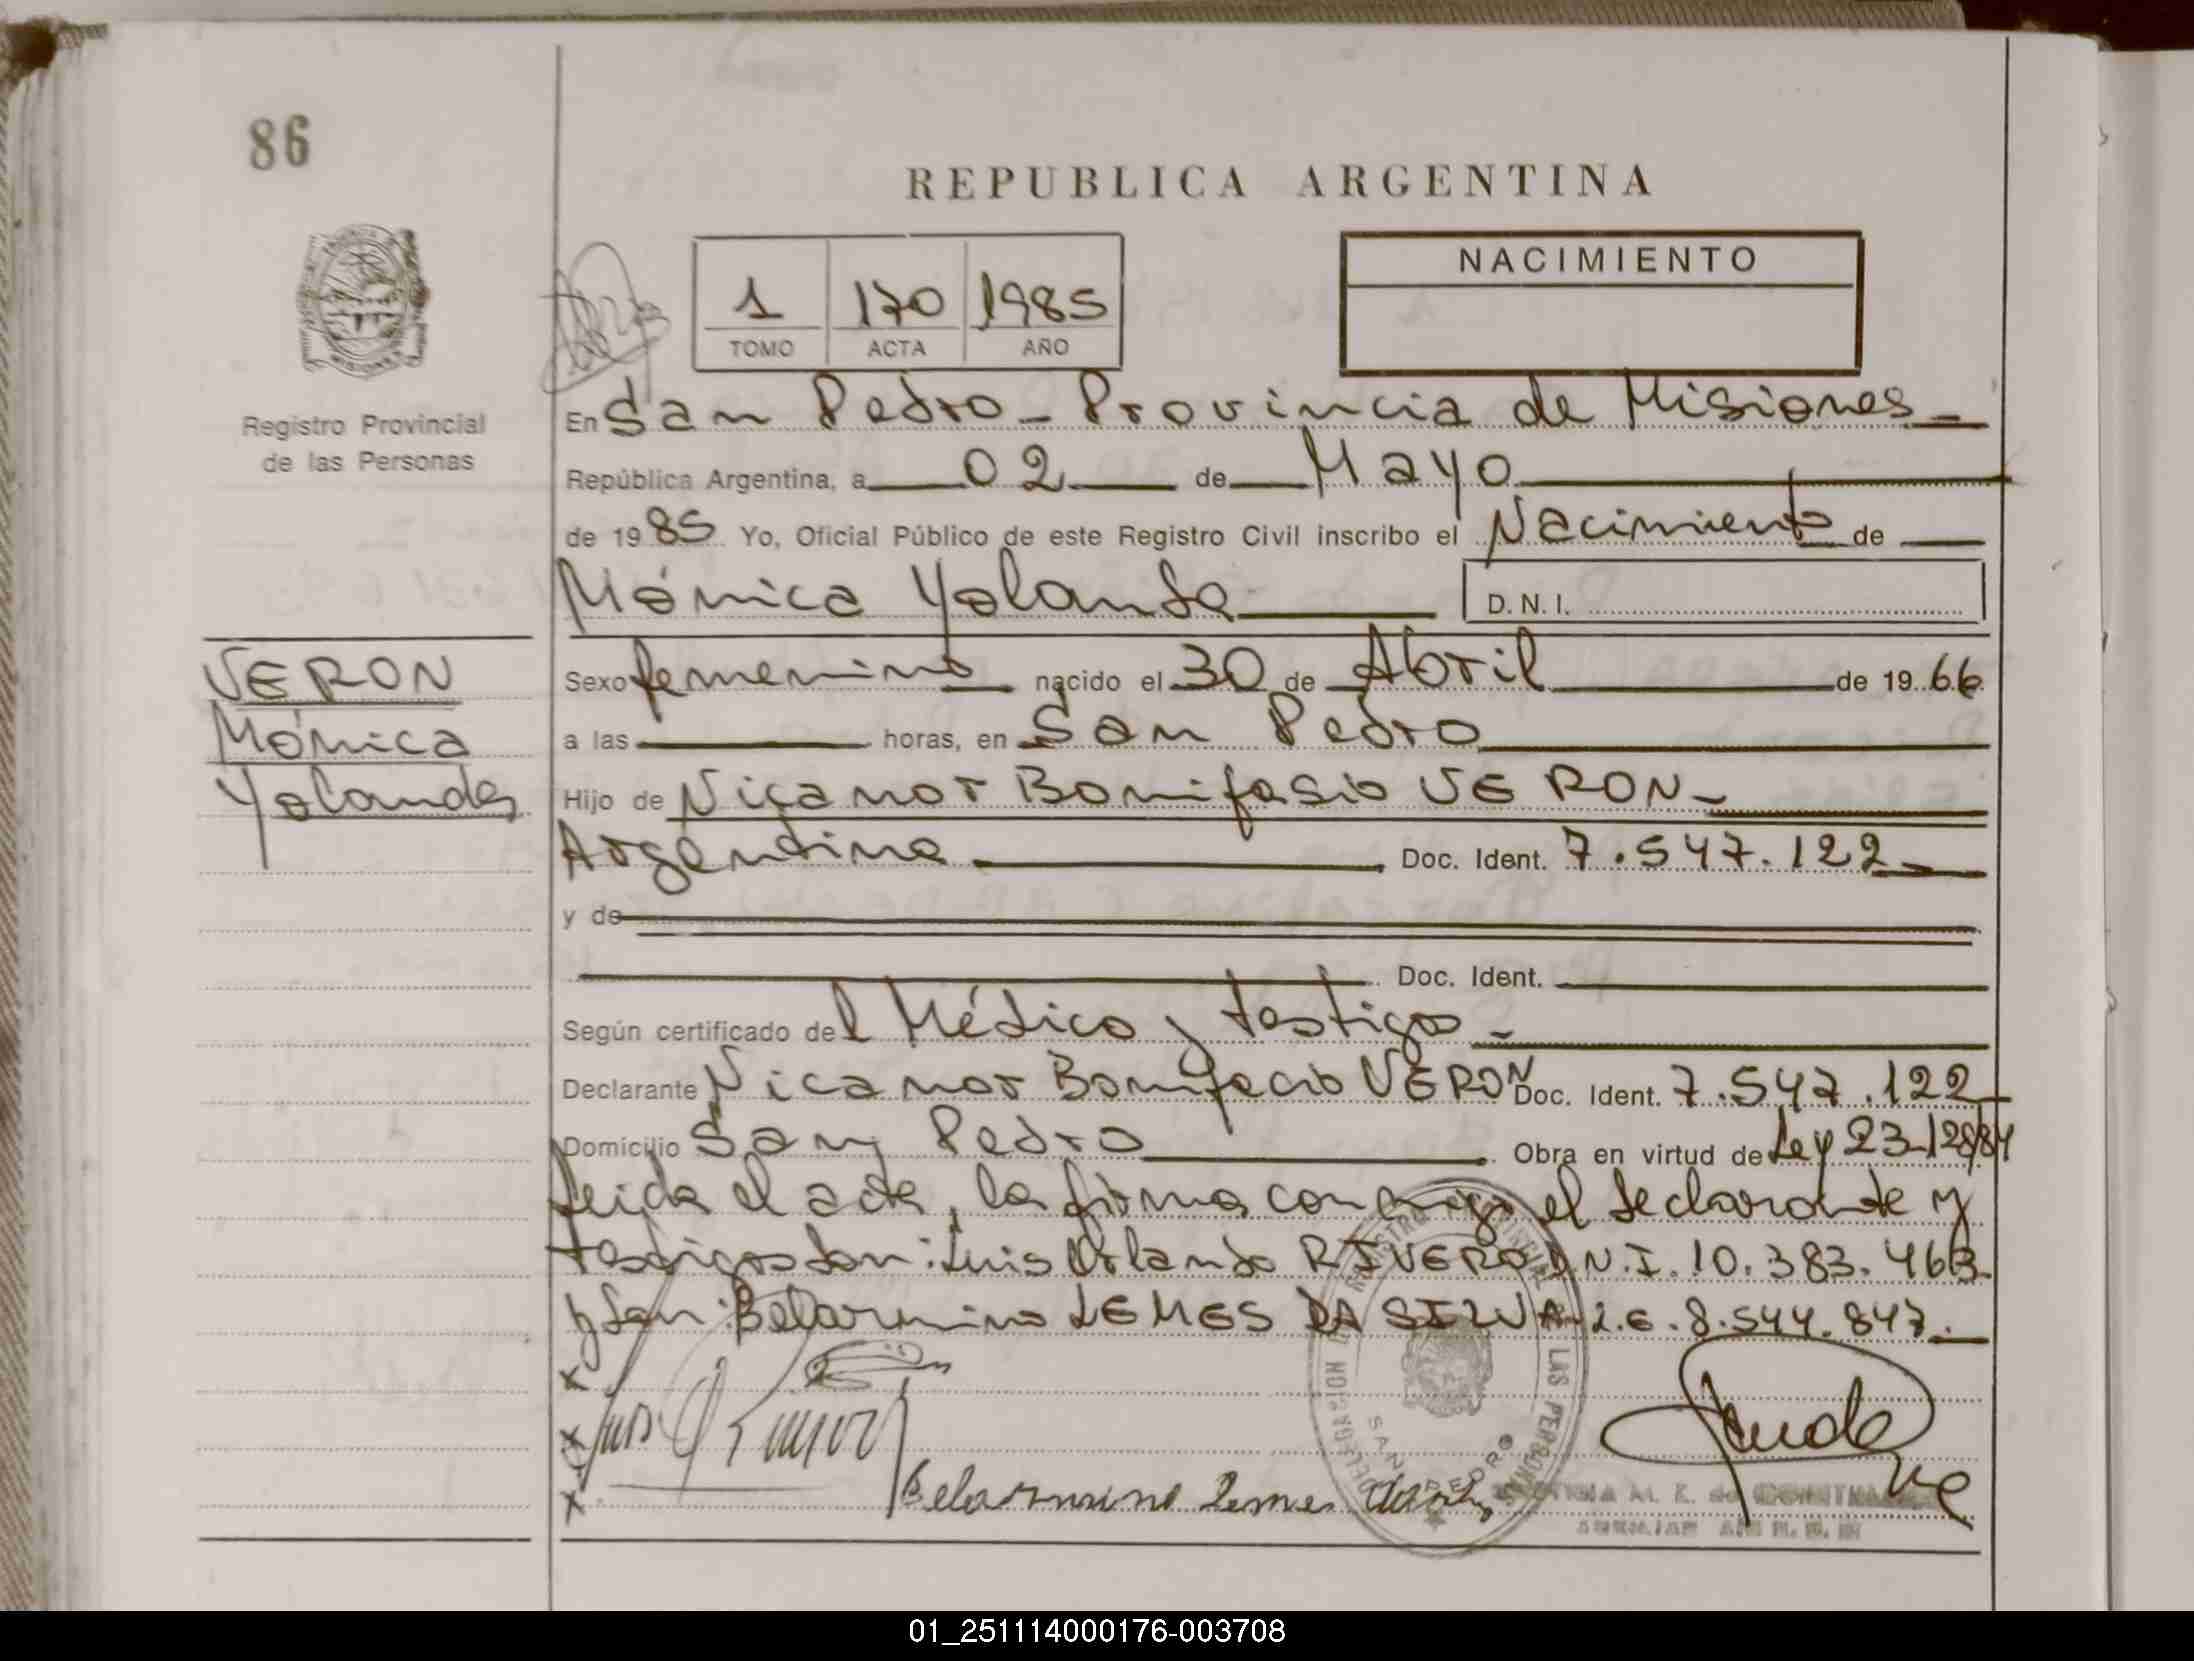 86
REPUBLICA ARGENTINA
NACIMIENTO
1 170 1985
TOMO ACTA AÑO
Registro Provincial
de las Personas
En San Pedro - Provincia de Misiones -
República Argentina, a 02 de Mayo
de 1985 Yo, Oficial Público de este Registro Civil inscribo el Nacimiento de
Mónica Yolanda D. N. I.
VERON
Mónica
Yolanda
Sexo femenino nacido el 30 de Abril de 1966
a las horas, en San Pedro
Hijo de Nicanor Bonifasio VERON -
Argentino Doc. Ident. 7.547.122
y de
Doc. Ident.
Según certificado del Médico y testigos -
Declarante Nicanor Bonifacio VERON Doc. Ident. 7.547.122
Domicilio San Pedro Obra en virtud de Ley 23.128/84
Leida el acta, la firma conmigo el declarante y
testigos Son: Luis Orlando RIVERO D.N.I. 10.383.463
y Son: Belarmino LEMES DA SILVA L.E. 8.544.847.
x
x Luis O
x Belarmino Lemes
REGISTRO PROVINCIAL DE LAS PERSONAS
DELEGACION
SAN PEDRO
01_251114000176-003708